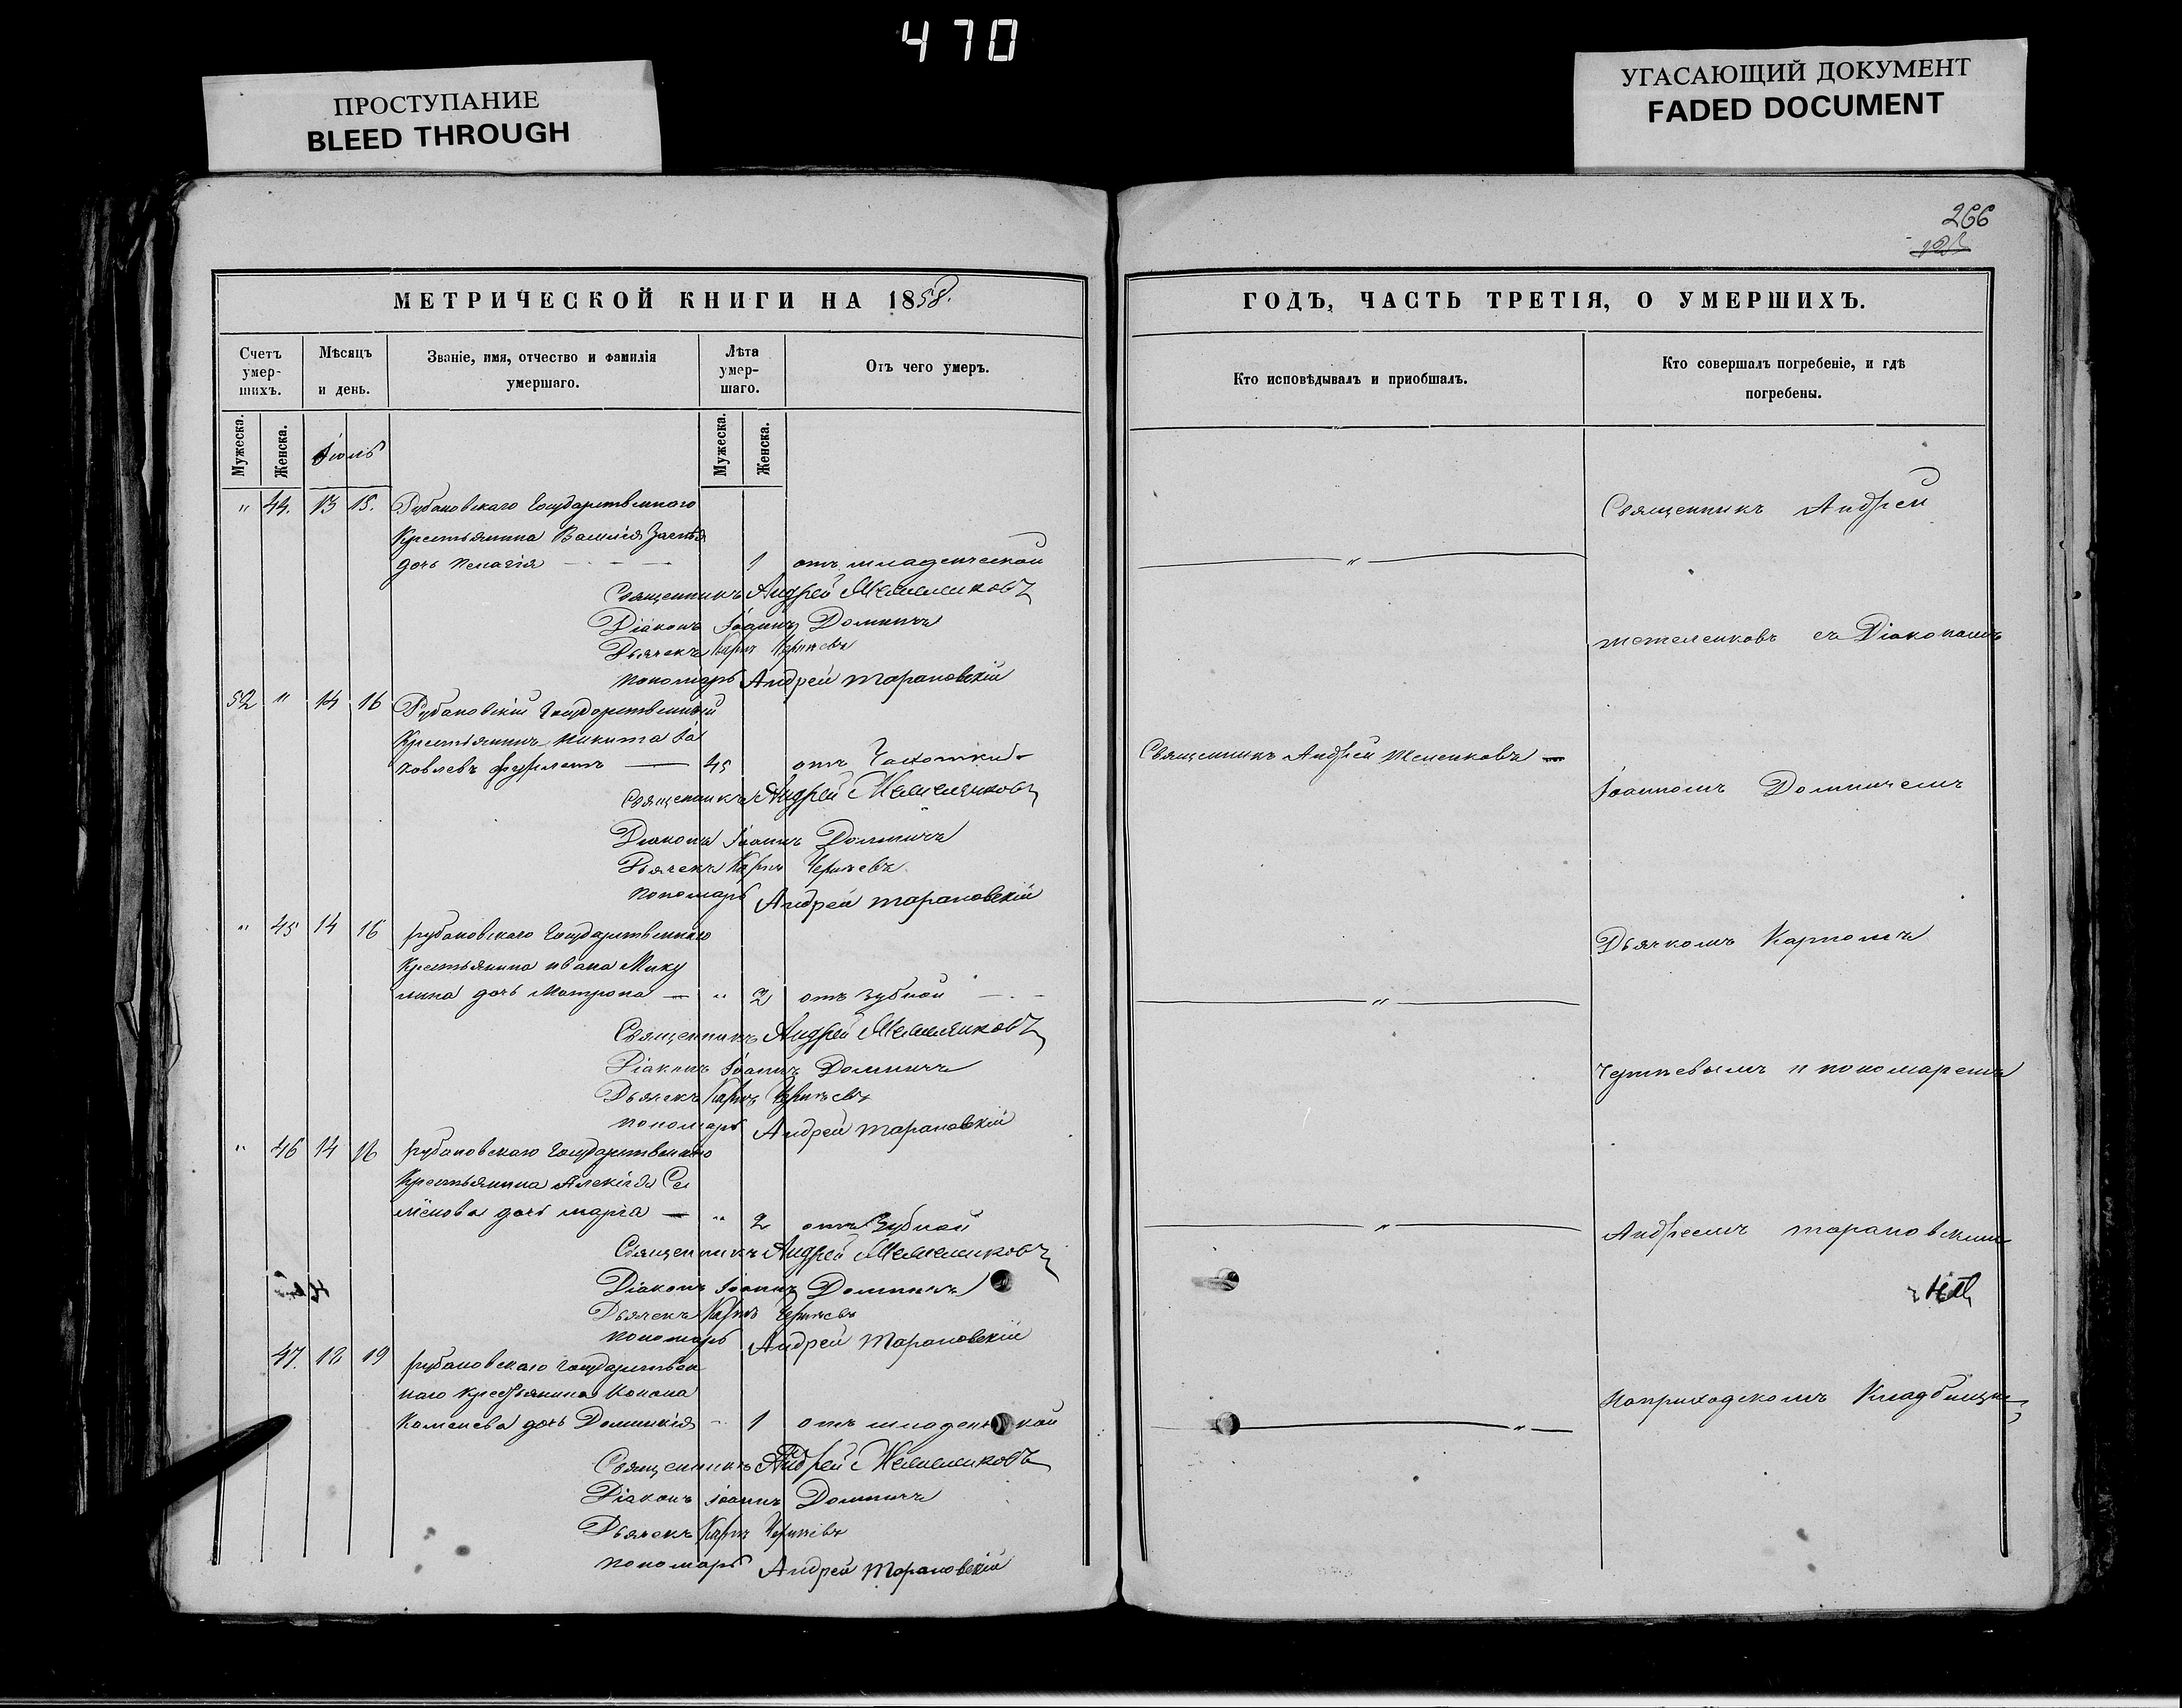 470
ПРОСТУПАНИЕ
BLEED THROUGH
УГАСАЮЩИЙ ДОКУМЕНТ
FADED DOCUMENT
266
МЕТРИЧЕСКОЙ КНИГИ НА 1858.
Счетъ умер-шихъ.
Мѣсяцъ и день.
Званіе, имя, отчество и фамилія умершаго.
Лѣта умер-шаго.
Отъ чего умеръ.
Мужеска.
Женска.
Іюль
Мужеска.
Женска.
" 44. 13 15. Рубановскаго Государственнаго
Крестьянина Василія
дочь Пелагія 1 отъ младенческой
Священникъ Андрей
Діаконъ Іоаннъ Домничъ
Дьячекъ Карпъ Черпевъ
Пономарь Андрей Тарановскій
52 " 14 16 Рубановскій Государственный
Крестьянинъ Никита Іа
ковлевъ 45 отъ Чахотки
Священникъ Андрей
Діаконъ Іоаннъ Домничъ
Дьячекъ Карпъ Черпевъ
Пономарь Андрей Тарановскій
" 45 14 16 рубановскаго Государственнаго
Крестьянина Ивана Мику
лина дочь Матрона — " 2 отъ зубной
Священникъ Андрей
Діаконъ Іоаннъ Домничъ
Дьячекъ Карпъ Черпевъ
пономарь Андрей Тарановскій
" 46 14 16 рубановскаго Государственнаго
Крестьянина Алексія Се
менова дочь марта — " 2 отъ Зубной
Священникъ Андрей
Діаконъ Іоаннъ Домничъ
Дьячекъ Карпъ Черпевъ
пономарь Андрей Тарановскій
47. 18 19 рубановскаго государствен
наго крестьянина Конона
Каменева дочь Домникія 1 отъ младенческой
Священникъ Андрей
Діаконъ Іоаннъ Домничъ
Дьячекъ Карпъ Черпевъ
пономарь Андрей Тарановскій
ГОДЪ, ЧАСТЬ ТРЕТІЯ, О УМЕРШИХЪ.
Кто исповѣдывалъ и приобщалъ.
Кто совершалъ погребеніе, и гдѣ погребены.
"
Священникъ Андрей
"
"
"
Священникъ Андрей
съ Діакономъ
Іоанномъ Домничемъ
Дьячкомъ Карпомъ
Черпевымъ и пономаремъ
Андреемъ тарановскимъ
На приходскомъ Кладбищѣ